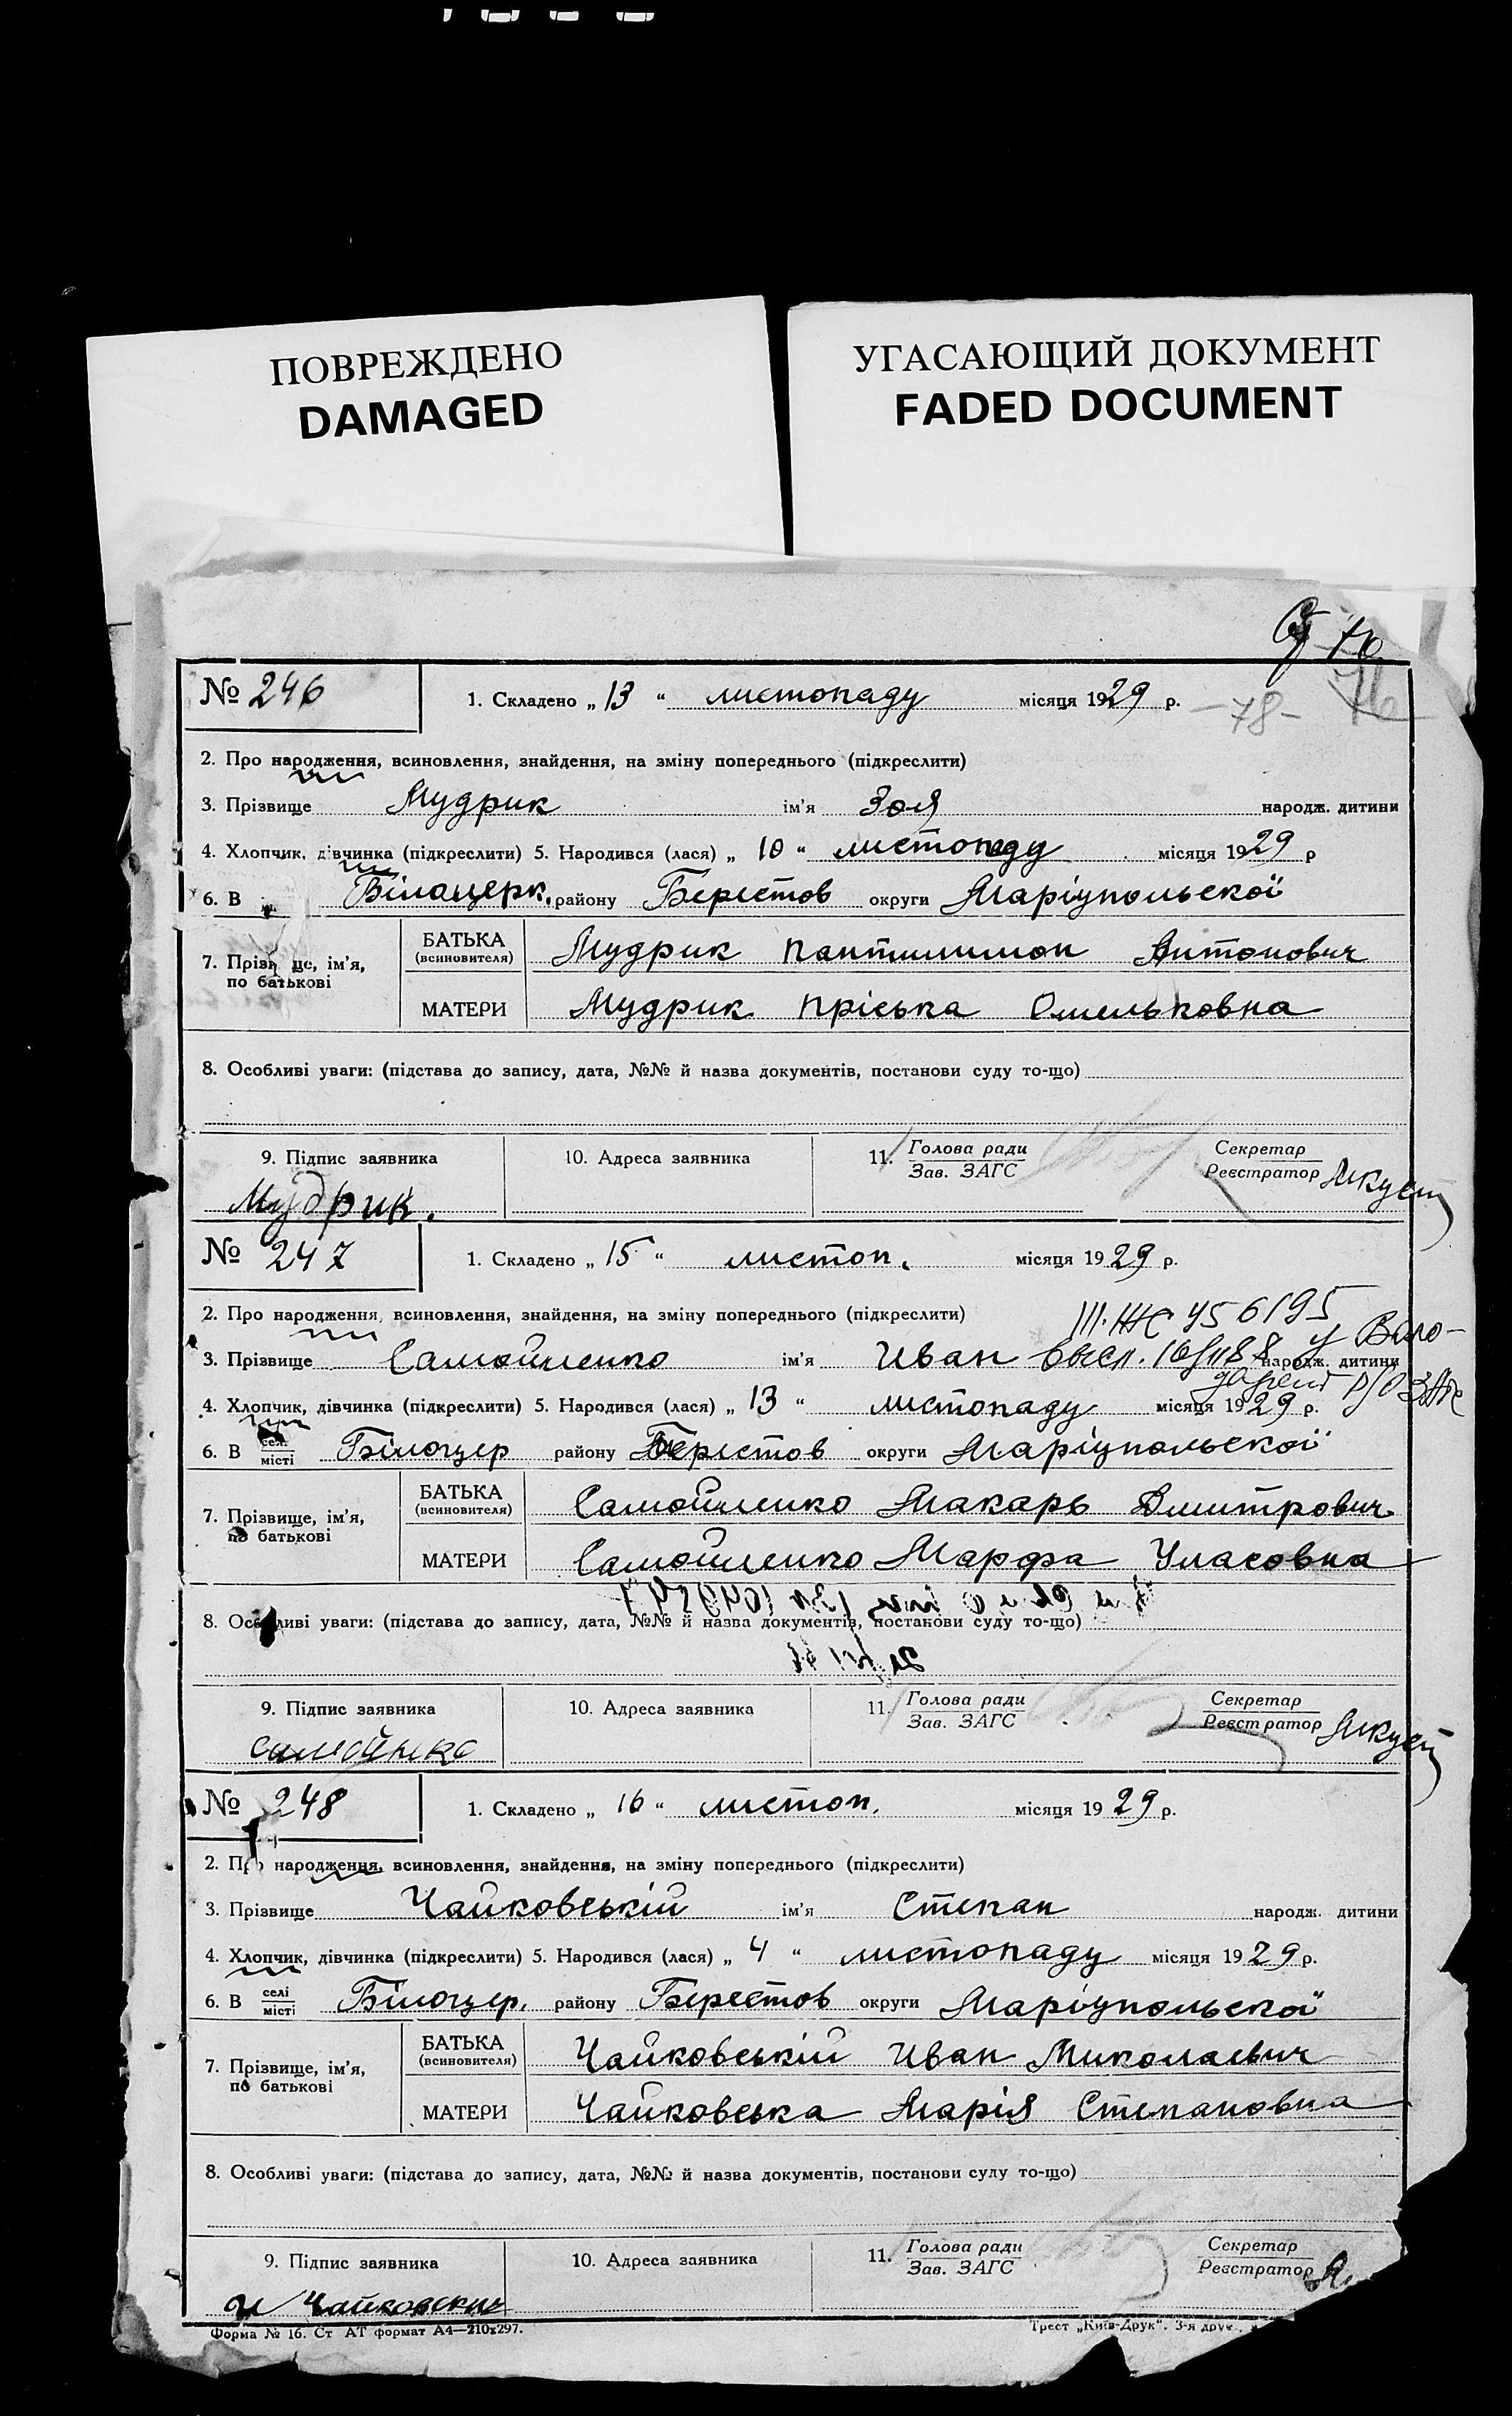 ПОВРЕЖДЕНО
DAMAGED
УГАСАЮЩИЙ ДОКУМЕНТ
FADED DOCUMENT
76
№ 246
1. Складено „ 13 “ листопаду місяця 1929 р. — 78 — 76
2. Про народження, всиновлення, знайдення, на зміну попереднього (підкреслити)
3. Прізвище Мудрик ім’я Зоя народж. дитини
4. Хлопчик, дівчинка (підкреслити) 5. Народився (лася) „ 10 “ листопаду місяця 1929 р
6. В Білоцерк. району Берестов округи Маріупольскої
7. Прізв ще, ім’я,
по батькові
БАТЬКА
(всиновителя)
Мудрик Пантилимон Антонович
МАТЕРИ Мудрик Пріська Омельковна
8. Особливі уваги: (підстава до запису, дата, №№ й назва документів, постанови суду то-що)
9. Підпис заявника 10. Адреса заявника 11. Голова ради
Зав. ЗАГС
Секретар
Реєстратор
Мудрик.
№ 247
1. Складено „ 15 “ листоп. місяця 1929 р.
2. Про народження, всиновлення, знайдення, на зміну попереднього (підкреслити)
III-ЖС 456195
3. Прізвище Самойленко ім’я Иван народж. дитини
4. Хлопчик, дівчинка (підкреслити) 5. Народився (лася) „ 13 “ листопаду місяця 1929 р.
6. В селі
місті
Білоцер району Берестов округи Маріупольскої
7. Прізвище, ім’я,
по батькові
БАТЬКА
(всиновителя)
Самойленко Макарь Дмитрович
МАТЕРИ Самойленко Марфа Уласовна
8. Особливі уваги: (підстава до запису, дата, №№ й назва документів, постанови суду то-що)
9. Підпис заявника 10. Адреса заявника 11. Голова ради
Зав. ЗАГС
Секретар
Реєстратор
№ 248
1. Складено „ 16 “ листоп. місяця 1929 р.
2. Про народження, всиновлення, знайдення, на зміну попереднього (підкреслити)
3. Прізвище Чайковській ім’я Степан народж. дитини
4. Хлопчик, дівчинка (підкреслити) 5. Народився (лася) „ 4 “ листопаду місяця 1929 р.
6. В селі
місті
Білоцер. району Берестов округи Маріупольскої
7. Прізвище, ім’я,
по батькові
БАТЬКА
(всиновителя)
Чайковській Иван Миколаевич
МАТЕРИ Чайковська Марія Степановна
8. Особливі уваги: (підстава до запису, дата, №№ й назва документів, постанови суду то-що)
9. Підпис заявника 10. Адреса заявника 11. Голова ради
Зав. ЗАГС
Секретар
Реєстратор
И Чайковский
Форма № 16. Ст АТ формат А4—210x297.
Трест „Київ-Друк“. 3-я друк.